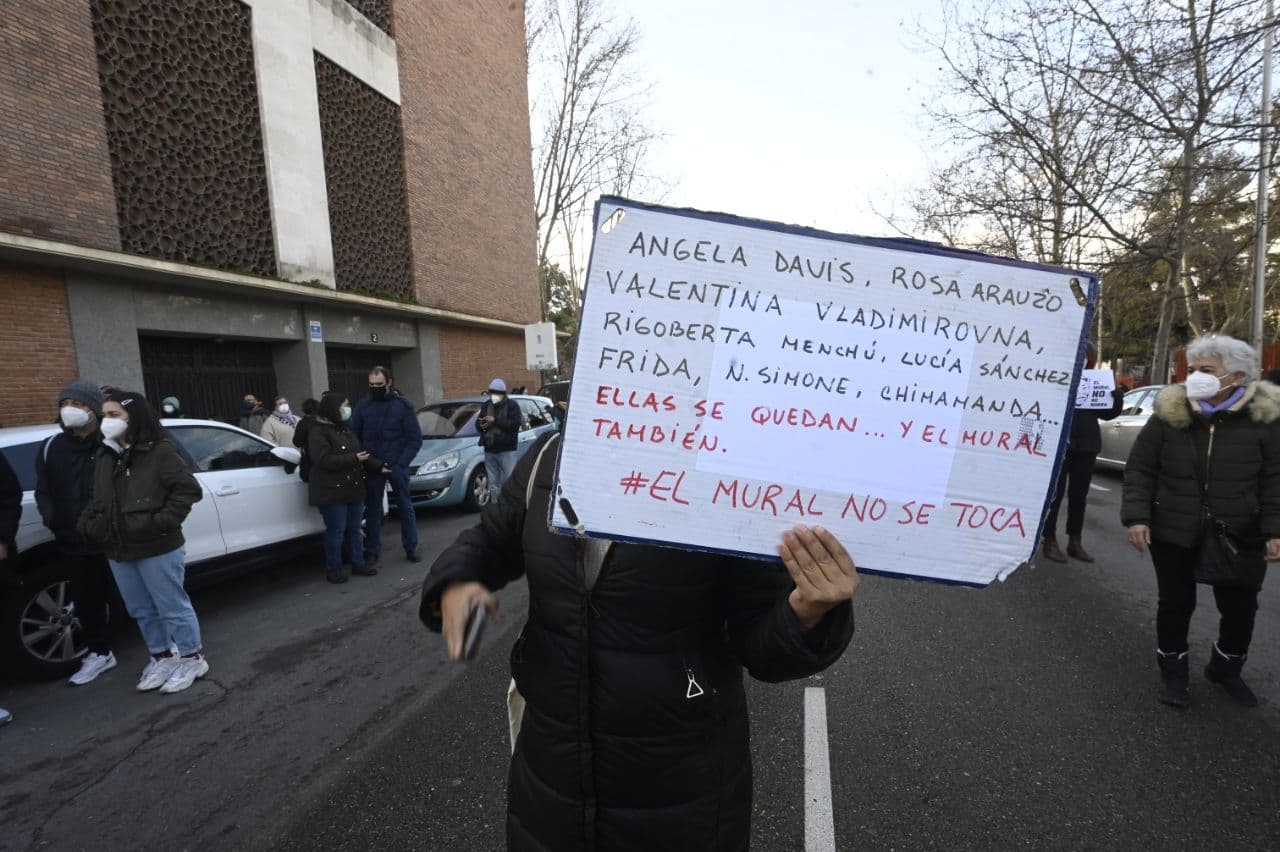 ANGELA DAVIS, ROSA ARAUZO
VALENTINA VLADIMIROVNA,
RIGOBERTA MENCHÚ, LUCÍA SÁNCHEZ
FRIDA, N. SIMONE, CHIMAMANDA...
ELLAS SE QUEDAN... Y EL MURAL
TAMBIÉN.
#EL MURAL NO SE TOCA
2
EL MURAL
NO